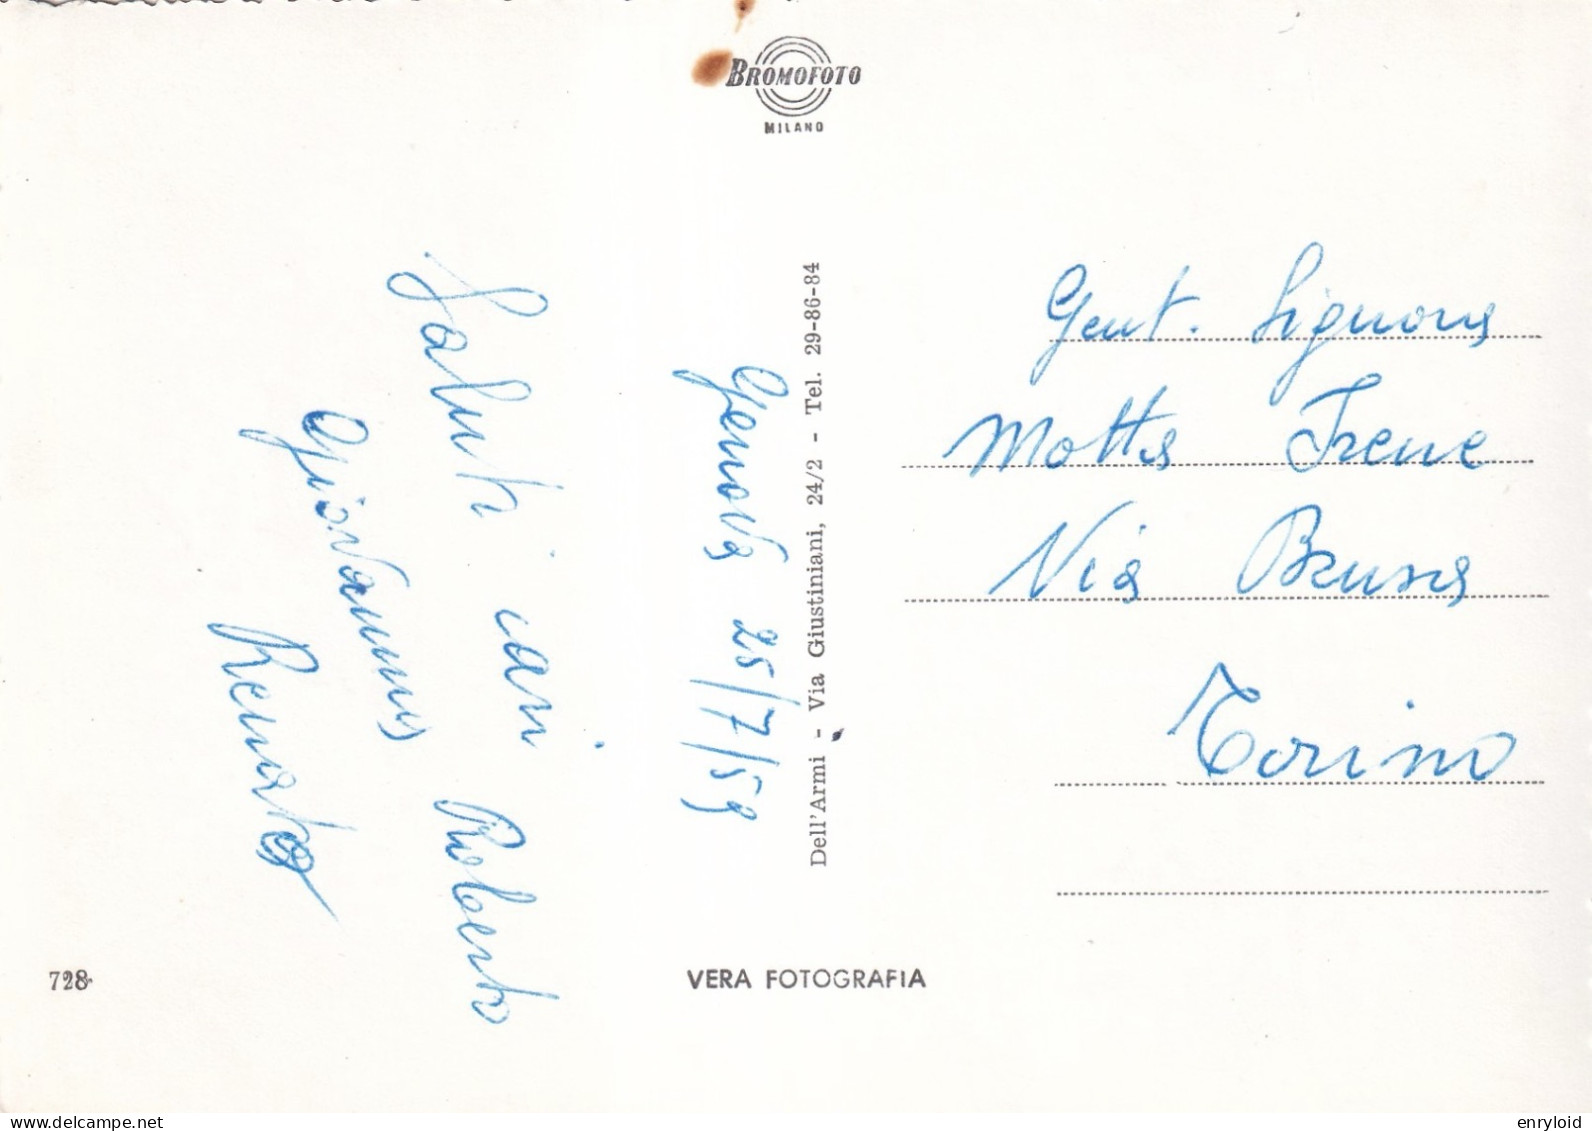 BROMOFOTO
MILANO
Genova 25/7/59
Saluti cari Roberto
Giovanna
Renato
Dell'Armi - Via Giustiniani, 24/2 - Tel. 29-86-84
Gent. Signora
Motta Irene
Via
Torino
728
VERA FOTOGRAFIA
delcampe.net
enryloid